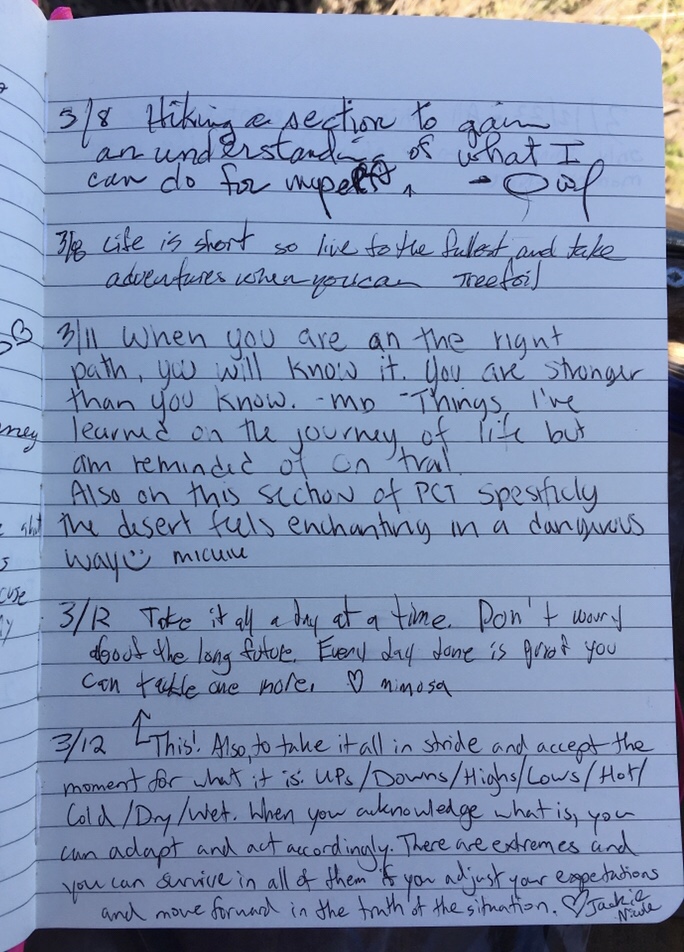 3/8 Hiking a section to gain
an understanding of what I
can do for
3/8 Life is short so live to the fullest and take
adventures when you can Treefoil
3/11 When you are on the right
path, you will know it. You are stronger
than you know. -MD - Things I've
learned on the journey of life but
am reminded of on trail.
Also on this section of PCT spesificly
the desert feels enchanting in a dangerous
way
3/12 Take it all a day at a time. Don't worry
about the long future. Every day done is proof you
can tackle one more. ♡ mimosa
3/12 This! Also, to take it all in stride and accept the
moment for what it is. UPs/Downs/Highs/Lows/Hot/
Cold/Dry/Wet. When you acknowledge what is, you
can adapt and act accordingly. There are extremes and
you can survive in all of them if you adjust your expectations
and move forward in the truth of the situation. ♡ Jackie
Nicole